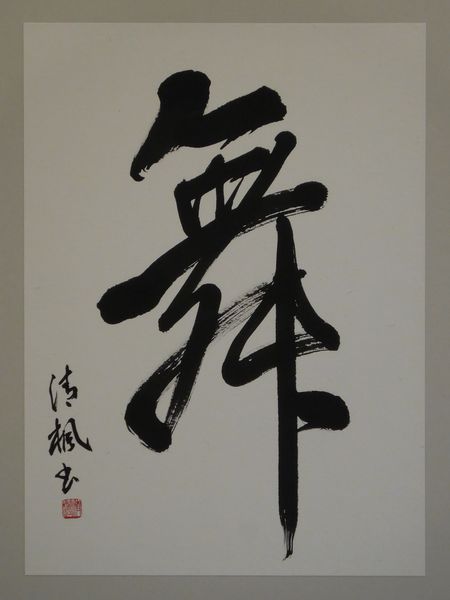 舞
清楓书